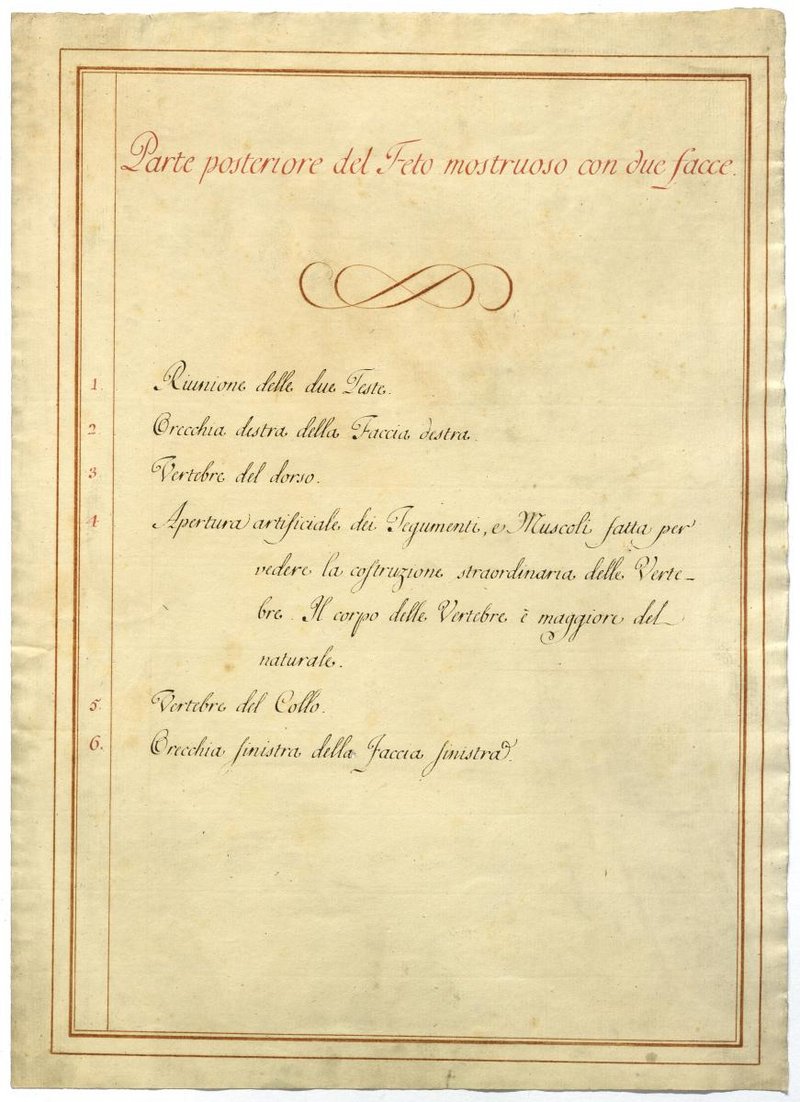 Parte posteriore del Feto mostruoso con due facce.
1. Riunione delle due Teste.
2. Orecchia destra della Faccia destra.
3. Vertebre del dorso.
4. Apertura artificiale dei Tegumenti, e Muscoli fatta per
vedere la costruzione straordinaria delle Verte-
bre. Il corpo delle Vertebre è maggiore del
naturale.
5. Vertebre del Collo.
6. Orecchia sinistra della Faccia sinistra.